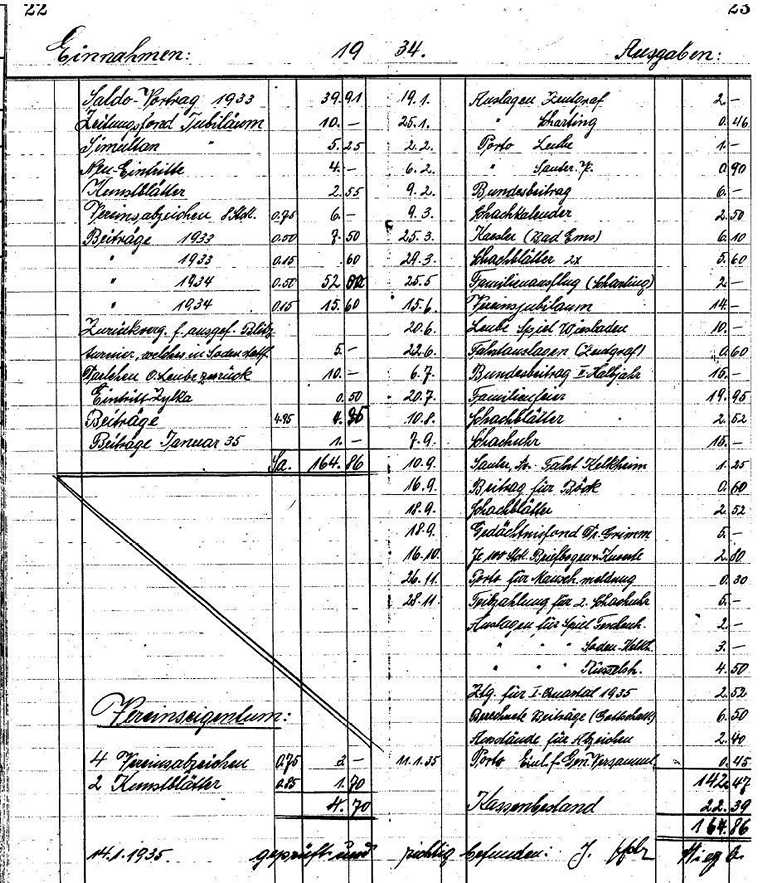 22
23
Einnahmen: 19 34. Ausgaben:
Saldo-Vortrag 1933 39.91
Zeitungsfond Jubiläum 10.-
Simultan " 5.25
Neu-Eintritte 4.-
Kunstblätter 2.55
Vereinsabzeichen 8 Stck. 0.75 6.-
Beiträge 1933 7.50
" 1933 0.15 .60
" 1934 52.
" 1934 0.15 15.60
Zurückverg. f. ausgef. Blitz
turnier, welches in Soden stattf. 5.-
Darlehen O. Leube zurück 10.-
Eintritt Zylka 0.50
Beiträge 4.95
Beiträge Januar 35 1.-
Sa. 164.86
Vereinseigentum:
4 Vereinsabzeichen 0.75
2 Kunstblätter 0.85 1.70
4.70
19.1. Auslagen Zentgraf 2.-
25.1. " Scharting 0.46
2.2. Porto Leube 1.-
6.2. " Sauter 0.90
9.2. Bundesbeitrag 6.-
9.3. Schachkalender 2.50
25.3. Kaesler (Bad Ems) 6.10
29.3. Schachblätter 2x 5.60
25.5 Familienausflug (Scharting) 2.-
15.6. Vereinsjubiläum 14.-
20.6. Leube Spiel Wiesbaden 10.-
22.6. Fahrtauslagen (Zentgraf) 0.60
6.7. Bundesbeitrag II. Halbjahr 15.-
20.7. Familienfeier 19.95
10.8. Schachblätter 2.52
7.9. Schachuhr 15.-
10.9. Sauter, Fahrt Kelkheim 1.25
16.9. Beitrag für Böck 0.60
18.9. Schachblätter 2.52
18.9. Gedächtnisfond Dr. Grimm 5.-
16.10. Je 100 Stck. Briefbogen u. Kuverte 2.80
26.11. Porto für meldung 0.30
28.11. Teilzahlung für 2. Schachuhr 5.-
Auslagen für Spiel 2.-
" " " Soden Kelkh. 3.-
" " " Rüsselsh. 4.50
Ztg. für I. Quartal 1935 2.52
Berechnete Beiträge (Gottschalk) 6.50
für Abzeichen 2.40
11.1.35 Porto Einl. f. Gen. Versamml. 0.45
142.47
Kassenbestand 22.39
164.86
14.1.1935. geprüft und richtig befunden: J.